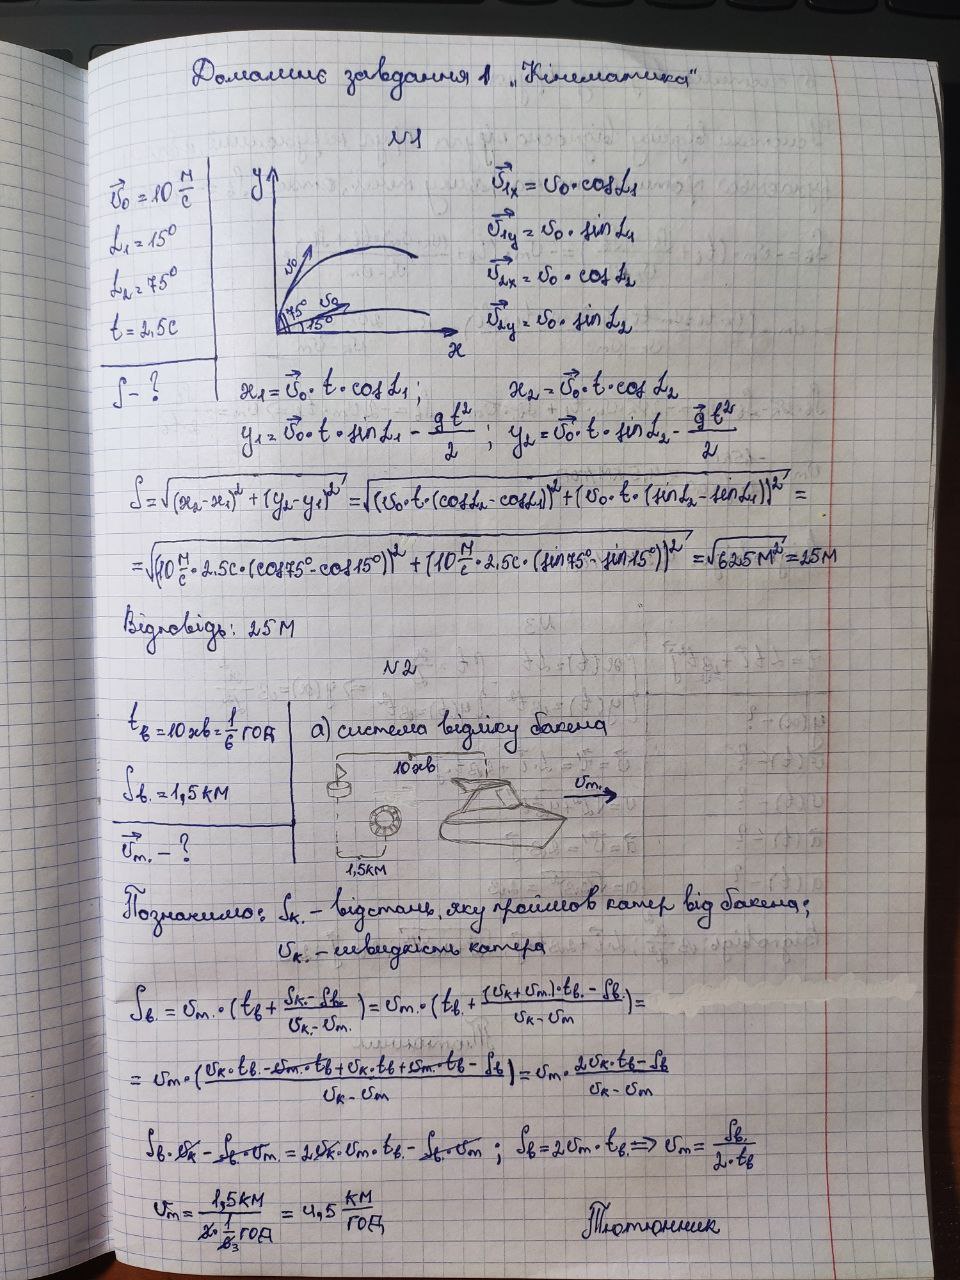 Домашнє завдання 1 "Кінематика"
N1
v⃗₀ = 10 м/с
L₁ = 15°
L₂ = 75°
t = 2,5с
S - ?
y
v₀
75°
v₀
15°
x
v⃗₁ₓ = v₀·cosL₁
v⃗₁y = v₀·sinL₁
v⃗₂ₓ = v₀·cosL₂
v⃗₂y = v₀·sinL₂
x₁ = v⃗₀·t·cosL₁; x₂ = v⃗₀·t·cosL₂
y₁ = v⃗₀·t·sinL₁ - gt²/2; y₂ = v⃗₀·t·sinL₂ - g⃗t²/2
S = √((x₂-x₁)²+(y₂-y₁)²) = √((v₀·t·(cosL₂-cosL₁))²+(v₀·t·(sinL₂-sinL₁))²) =
= √((10 м/с·2.5с·(cos75°-cos15°))²+(10 м/с·2,5с·(sin75°-sin15°))²) = √(625м²) = 25м
Відповідь: 25м
N2
tв = 10хв = 1/6 год
Sв. = 1,5км
v⃗т. - ?
а) система відліку бакена
10хв
vт.
1,5км
Позначимо: Sк. - відстань, яку пройшов катер від бакена;
vк. - швидкість катера
Sв. = vт.·(tв + (Sк.-Sв.)/(vк.-vт.)) = vт.·(tв. + ((vк+vт.)·tв.-Sв.)/(vк-vт)) =
= vт·((vк·tв.-vт.·tв+vк·tв+vт·tв-Sв)/(vк-vт)) = vт·(2vк·tв-Sв)/(vк-vт)
Sв·vк-Sв·vт = 2vк·vт·tв-Sв·vт; Sв = 2vт·tв ⇒ vт = Sв./(2·tв)
vт = 1,5км/(2·1/6 год) = 4,5 км/год
3
Тютюнник